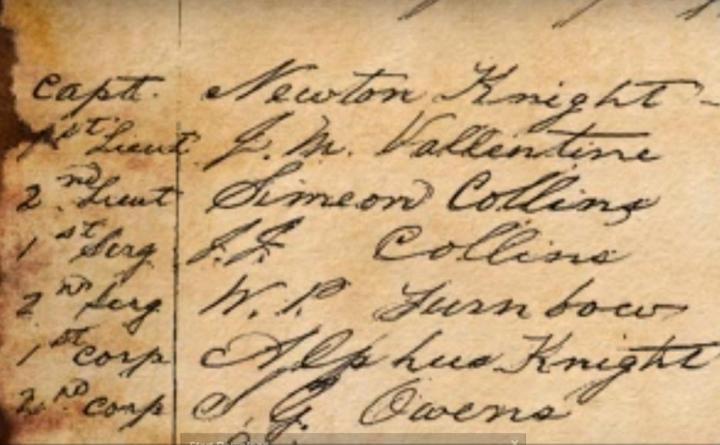 Capt. Newton Knight -
1st Lieut J. M. Vallentine
2nd Lieut Simeon Collins
1st Serg J. J. Collins
2nd Serg W. P. Turnbow
1st Corp Alphus Knight
2nd Corp S. G. Owens